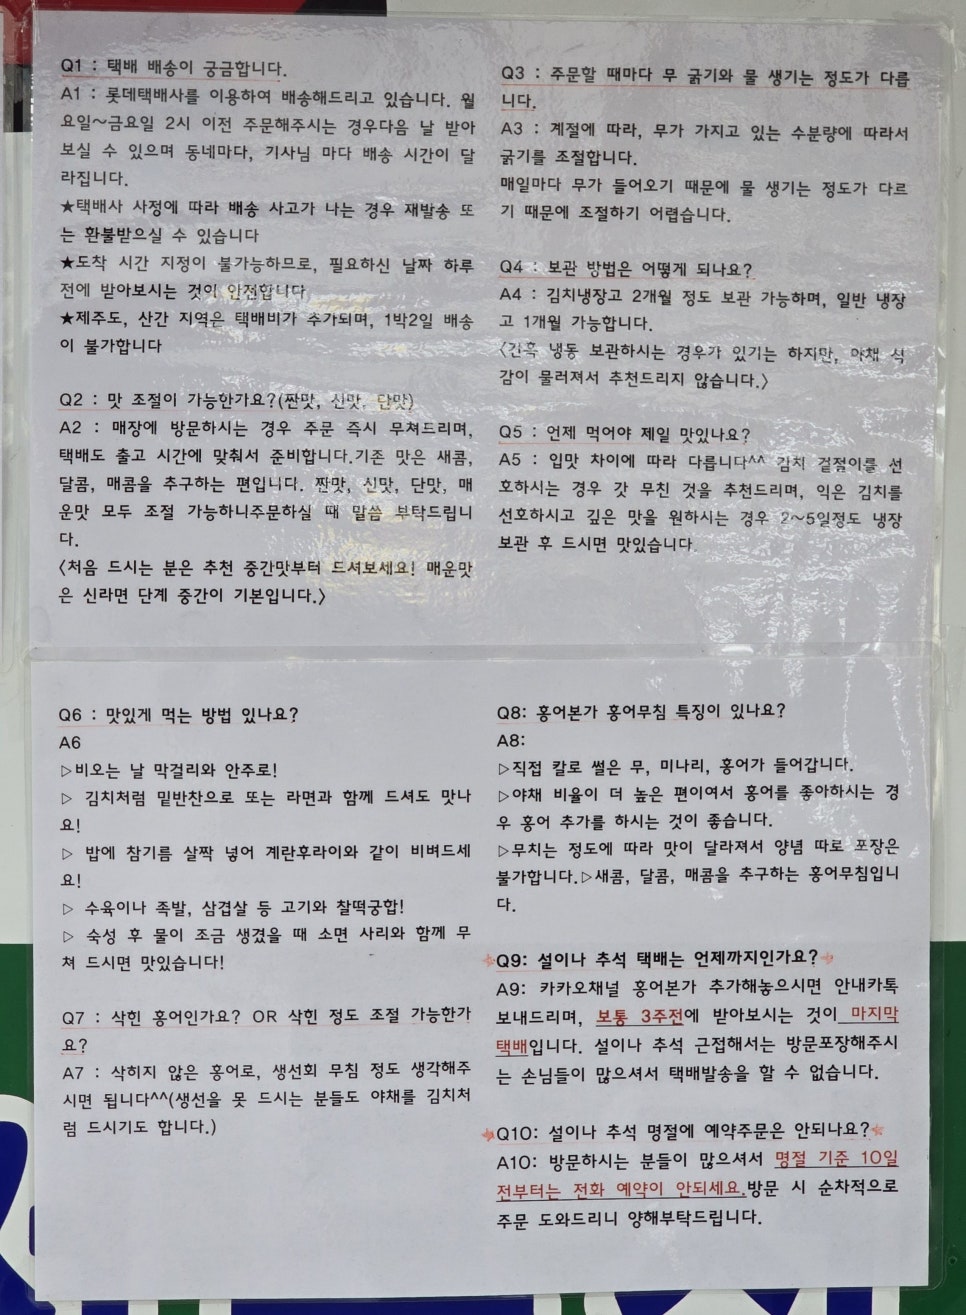 Q1 : 택배 배송이 궁금합니다.
A1 : 롯데택배사를 이용하여 배송해드리고 있습니다. 월
요일~금요일 2시 이전 주문해주시는 경우다음 날 받아
보실 수 있으며 동네마다, 기사님 마다 배송 시간이 달
라집니다.
★택배사 사정에 따라 배송 사고가 나는 경우 재발송 또
는 환불받으실 수 있습니다
★도착 시간 지정이 불가능하므로, 필요하신 날짜 하루
전에 받아보시는 것이 안전합니다
★제주도, 산간 지역은 택배비가 추가되며, 1박2일 배송
이 불가합니다
Q2 : 맛 조절이 가능한가요?(짠맛, 신맛, 단맛)
A2 : 매장에 방문하시는 경우 주문 즉시 무쳐드리며,
택배도 출고 시간에 맞춰서 준비합니다.기존 맛은 새콤,
달콤, 매콤을 추구하는 편입니다. 짠맛, 신맛, 단맛, 매
운맛 모두 조절 가능하니주문하실 때 말씀 부탁드립니
다.
<처음 드시는 분은 추천 중간맛부터 드셔보세요! 매운맛
은 신라면 단계 중간이 기본입니다.>
Q3 : 주문할 때마다 무 굵기와 물 생기는 정도가 다릅
니다.
A3 : 계절에 따라, 무가 가지고 있는 수분량에 따라서
굵기를 조절합니다.
매일마다 무가 들어오기 때문에 물 생기는 정도가 다르
기 때문에 조절하기 어렵습니다.
Q4 : 보관 방법은 어떻게 되나요?
A4 : 김치냉장고 2개월 정도 보관 가능하며, 일반 냉장
고 1개월 가능합니다.
<간혹 냉동 보관하시는 경우가 있기는 하지만, 야채 식
감이 물러져서 추천드리지 않습니다.>
Q5 : 언제 먹어야 제일 맛있나요?
A5 : 입맛 차이에 따라 다릅니다^^ 김치 겉절이를 선
호하시는 경우 갓 무친 것을 추천드리며, 익은 김치를
선호하시고 깊은 맛을 원하시는 경우 2~5일정도 냉장
보관 후 드시면 맛있습니다.
Q6 : 맛있게 먹는 방법 있나요?
A6
▷비오는 날 막걸리와 안주로!
▷ 김치처럼 밑반찬으로 또는 라면과 함께 드셔도 맛나
요!
▷ 밥에 참기름 살짝 넣어 계란후라이와 같이 비벼드세
요!
▷ 수육이나 족발, 삼겹살 등 고기와 찰떡궁합!
▷ 숙성 후 물이 조금 생겼을 때 소면 사리와 함께 무
쳐 드시면 맛있습니다!
Q7 : 삭힌 홍어인가요? OR 삭힌 정도 조절 가능한가
요?
A7 : 삭히지 않은 홍어로, 생선회 무침 정도 생각해주
시면 됩니다^^(생선을 못 드시는 분들도 야채를 김치처
럼 드시기도 합니다.)
Q8: 홍어본가 홍어무침 특징이 있나요?
A8:
▷직접 칼로 썰은 무, 미나리, 홍어가 들어갑니다.
▷야채 비율이 더 높은 편이여서 홍어를 좋아하시는 경
우 홍어 추가를 하시는 것이 좋습니다.
▷무치는 정도에 따라 맛이 달라져서 양념 따로 포장은
불가합니다.▷새콤, 달콤, 매콤을 추구하는 홍어무침입니
다.
★Q9: 설이나 추석 택배는 언제까지인가요?★
A9: 카카오채널 홍어본가 추가해놓으시면 안내카톡
보내드리며, 보통 3주전에 받아보시는 것이 마지막
택배입니다. 설이나 추석 근접해서는 방문포장해주시
는 손님들이 많으셔서 택배발송을 할 수 없습니다.
★Q10: 설이나 추석 명절에 예약주문은 안되나요?★
A10: 방문하시는 분들이 많으셔서 명절 기준 10일
전부터는 전화 예약이 안되세요.방문 시 순차적으로
주문 도와드리니 양해부탁드립니다.